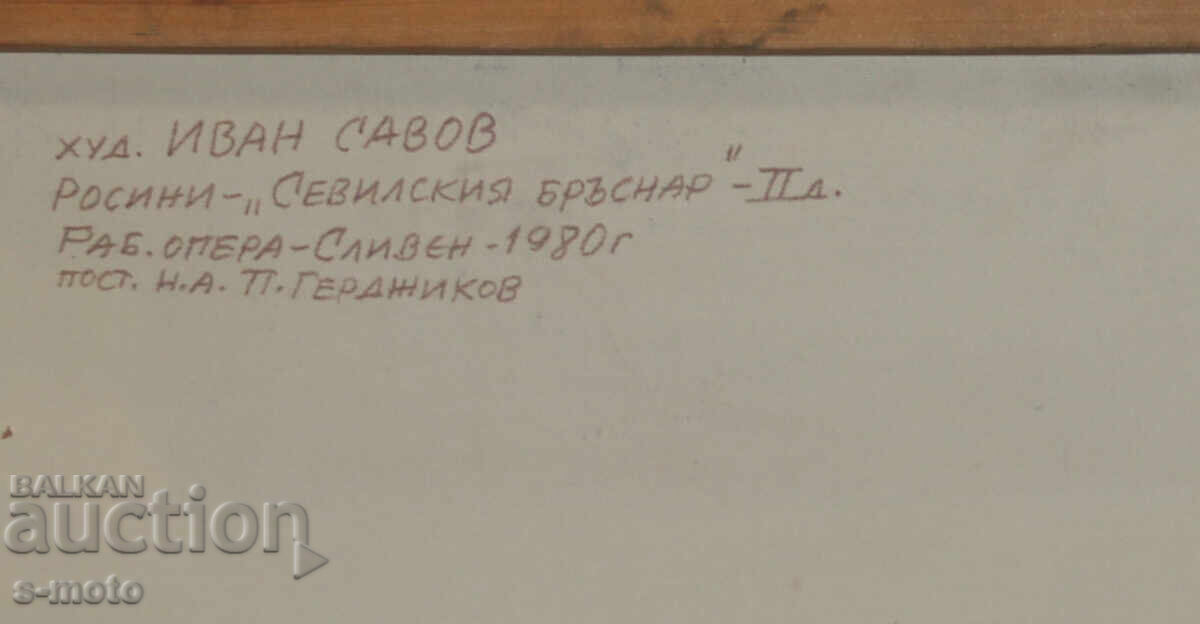 худ. ИВАН САВОВ
РОСИНИ - „СЕВИЛСКИЯ БРЪСНАР" - II д.
РАБ. ОПЕРА - СЛИВЕН - 1980 г
ПОСТ. Н.А. П. ГЕРДЖИКОВ
BALKAN
auction
s-moto